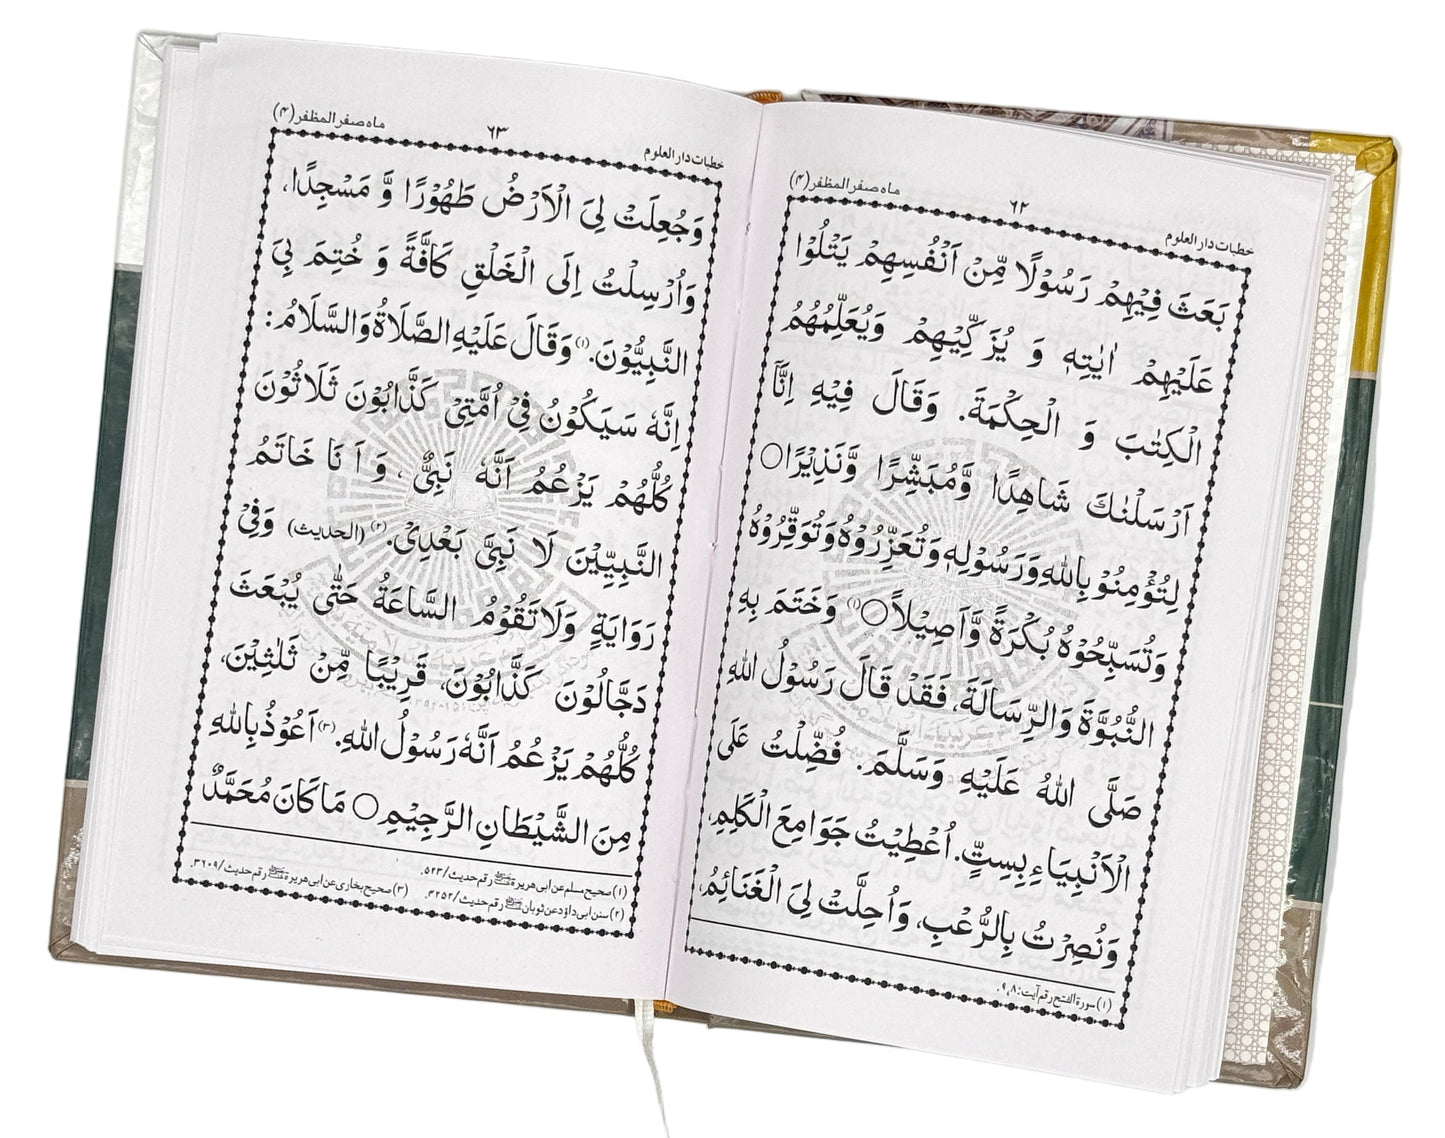 خطبات دار العلوم
٦٢
ماہ صفر المظفر (۴)
بَعَثَ فِيْهِمْ رَسُوْلًا مِّنْ اَنْفُسِهِمْ يَتْلُوْا
عَلَيْهِمْ اٰيٰتِهٖ وَ يُزَكِّيْهِمْ وَيُعَلِّمُهُمُ
الْكِتٰبَ وَ الْحِكْمَةَ. وَقَالَ فِيْهِ اِنَّآ
اَرْسَلْنٰكَ شَاهِدًا وَّمُبَشِّرًا وَّنَذِيْرًا○
لِتُؤْمِنُوْا بِاللّٰهِ وَرَسُوْلِهٖ وَتُعَزِّرُوْهُ وَتُوَقِّرُوْهُ
وَتُسَبِّحُوْهُ بُكْرَةً وَّاَصِيْلًا○(۱) وَخَتَمَ بِهِ
النُّبُوَّةَ وَالرِّسَالَةَ، فَقَدْ قَالَ رَسُوْلُ اللّٰهِ
صَلَّى اللّٰهُ عَلَيْهِ وَسَلَّمَ. فُضِّلْتُ عَلَى
الْاَنْبِيَاءِ بِسِتٍّ. اُعْطِيْتُ جَوَامِعَ الْكَلِمِ،
وَنُصِرْتُ بِالرُّعْبِ، وَاُحِلَّتْ لِىَ الْغَنَائِمُ،
(۱) سورة الفتح رقم آیت: ۸، ۹.
خطبات دار العلوم
٦٣
ماہ صفر المظفر (۴)
وَجُعِلَتْ لِىَ الْاَرْضُ طَهُوْرًا وَّ مَسْجِدًا،
وَاُرْسِلْتُ اِلَى الْخَلْقِ كَافَّةً وَ خُتِمَ بِىَ
النَّبِيُّوْنَ.(۱) وَقَالَ عَلَيْهِ الصَّلَاةُ وَالسَّلَامُ:
اِنَّهٗ سَيَكُوْنُ فِىْ اُمَّتِىْ كَذَّابُوْنَ ثَلَاثُوْنَ
كُلُّهُمْ يَزْعُمُ اَنَّهٗ نَبِىٌّ، وَ اَنَا خَاتَمُ
النَّبِيِّيْنَ لَا نَبِىَّ بَعْدِىْ.(۲) (الحديث) وَفِىْ
رَوَايَةٍ وَلَاتَقُوْمُ السَّاعَةُ حَتّٰى يُبْعَثَ
دَجَّالُوْنَ كَذَّابُوْنَ، قَرِيْبًا مِّنْ ثَلٰثِيْنَ،
كُلُّهُمْ يَزْعُمُ اَنَّهٗ رَسُوْلُ اللّٰهِ.(۳) اَعُوْذُ بِاللّٰهِ
مِنَ الشَّيْطَانِ الرَّجِيْمِ○ مَا كَانَ مُحَمَّدٌ
(۱) صحیح مسلم عن ابی هریرة رقم حدیث/۵۲۳.
(۲) سنن ابی داؤد عن ثوبان رقم حدیث/۴۲۵۲. (۳) صحیح بخاری عن ابی هریرة رقم حدیث/۳٦۰۹.